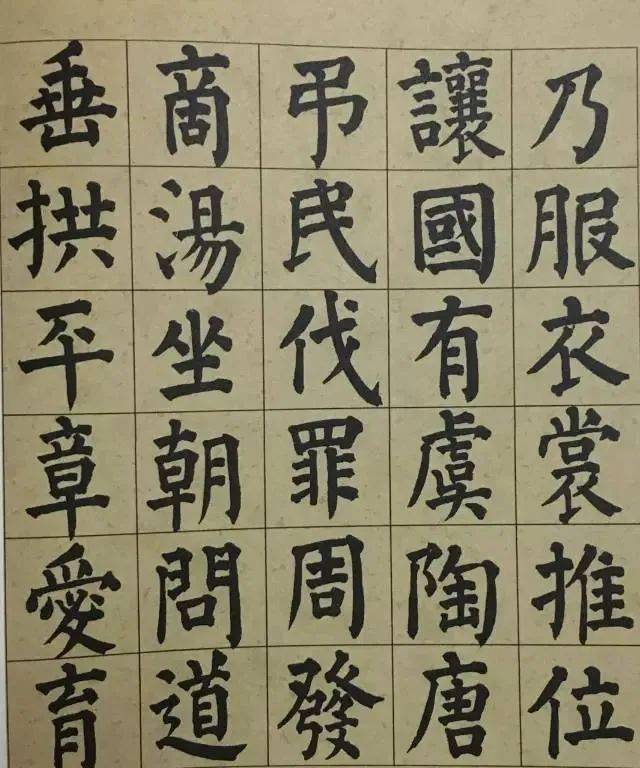 乃服衣裳推位
讓國有虞陶唐
弔民伐罪周發
商湯坐朝問道
垂拱平章愛育